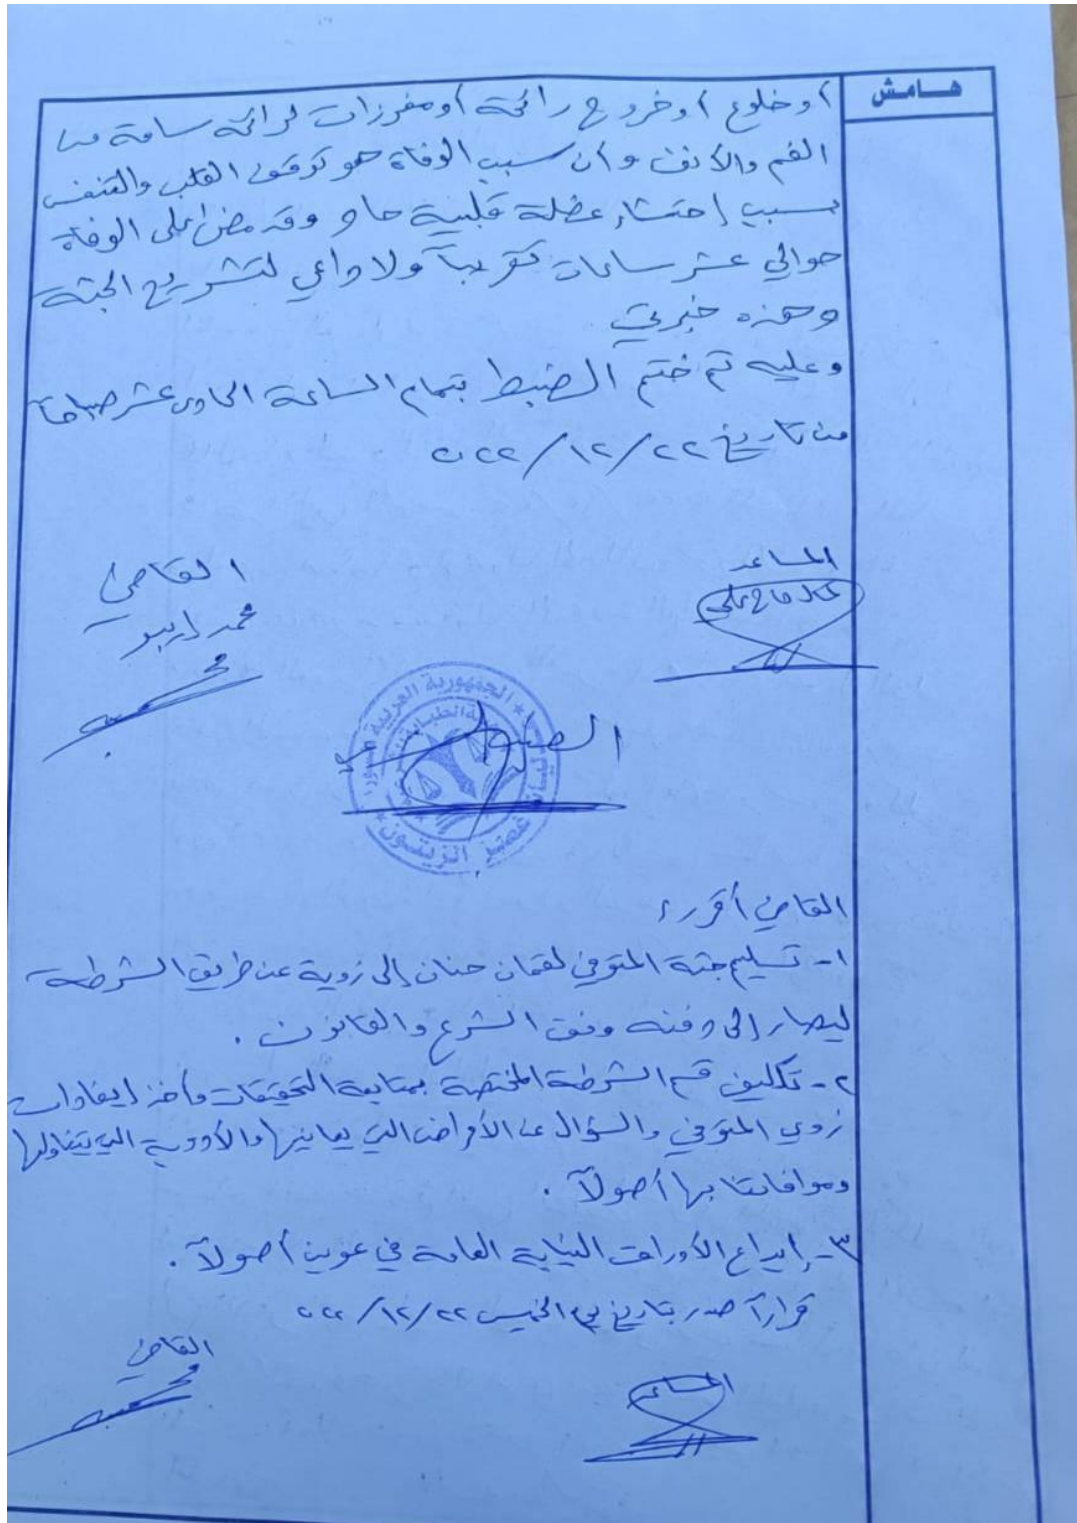 هامش
أو خلوع أو خروج رائحة أو مفرزات لرائحة سامة من
الفم والأنف وأن سبب الوفاة هو توقف القلب والتنفس
بسبب إحتشاء عضلة قلبية حاد وقد مضى على الوفاة
حوالي عشر ساعات تقريباً ولا داعي لتشريح الجثة
وهذه خبرتي
وعليه تم ختم الضبط بتمام الساعة الحادي عشر صباحاً
من تاريخ ٢٢/١٢/٢٠٢٢
المساعد
القاضي
محمد
الجمهورية العربية السورية
غصن الزيتون
القاضي أقرر:
١- تسليم جثة المتوفي لقمان حنان إلى ذويه عن طريق الشرطة
ليصار إلى دفنه وفق الشرع والقانون .
٢- تكليف قسم الشرطة المختصة بمتابعة التحقيقات وأخذ إيفادات
ذوي المتوفي والسؤال عن الأمراض التي يعانيها والأدوية التي يتناولها
وموافاتنا بها أصولاً .
٣- إيداع الأوراق النيابة العامة في عفرين أصولاً .
قراراً صدر بتاريخ يوم الخميس ٢٢/١٢/٢٠٢٢
القاضي
المساعد